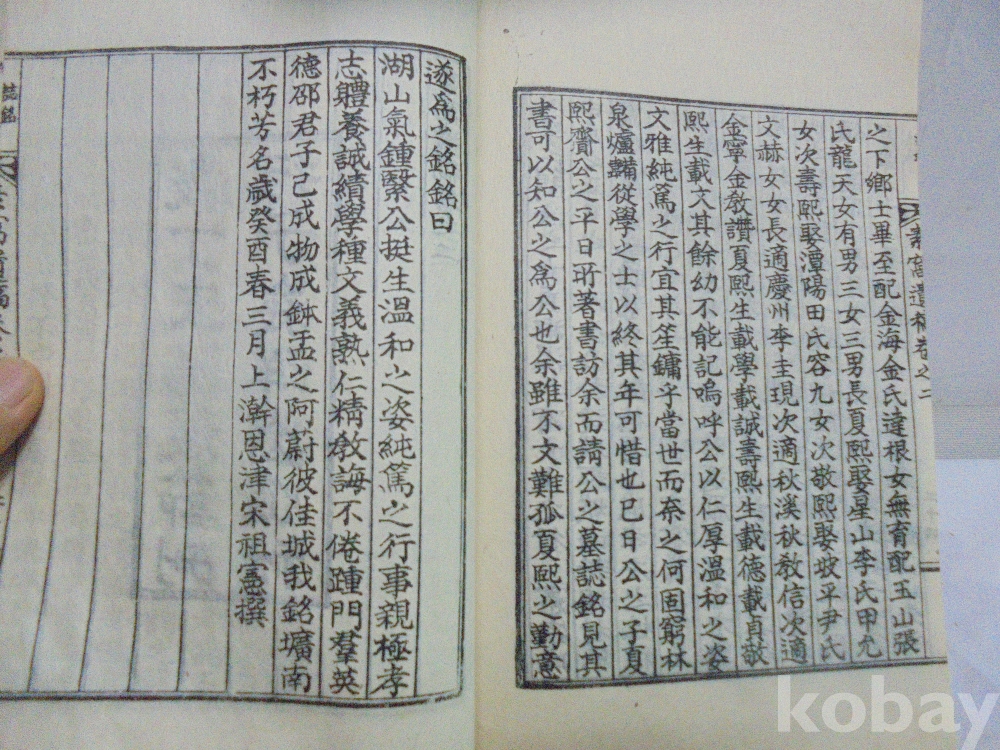 素窩遺稿卷之二
之下鄕士畢至配金海金氏達根女無育配玉山張
氏龍天女有男三女三男長夏熙娶星山李氏甲允
女次壽熙娶潭陽田氏容九女次敬熙娶坡平尹氏
文赫女女長適慶州李圭現次適秋溪秋敎信次適
金寧金敎讚夏熙生載學載誠壽熙生載德載貞敬
熙生載文其餘幼不能記嗚呼公以仁厚溫和之姿
文雅純篤之行宜其笙鏞乎當世而奈之何固窮林
泉爐韛從學之士以終其年可惜也已日公之子夏
熙齎公之平日所著書訪余而請公之墓誌銘見其
書可以知公之爲公也余雖不文難孤夏熙之勤意
遂爲之銘銘曰
湖山氣鍾繄公挺生溫和之姿純篤之行事親極孝
志體養誠績學種文義熟仁精敎誨不倦踵門羣英
德邵君子已成物成鉢盂之阿蔚彼佳城我銘壙南
不朽芳名歲癸酉春三月上澣恩津宋祖憲撰
誌銘
kobay